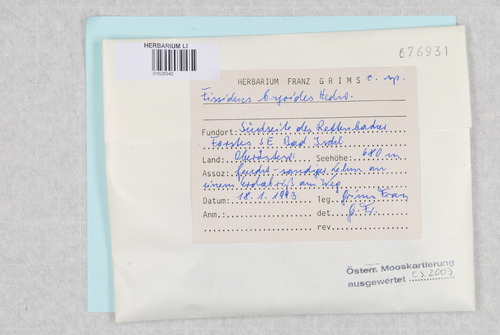 HERBARIUM LI
01628340
676931
HERBARIUM FRANZ GRIMS c. sp.
Fissidens bryoides Hedw.
Fundort: Südseite des Rettenbacher
Forstes SE Bad Ischl
Land: Oberösterr. Seehöhe: 680 m
Assoz: feucht-sandiger Lehm an
einem Erdabriß am Weg
Datum: 18.1.1993 leg. Grims Franz
Anm.: det. G. Fr.
rev.
Österr. Mooskartierung
ausgewertet CS. 2003